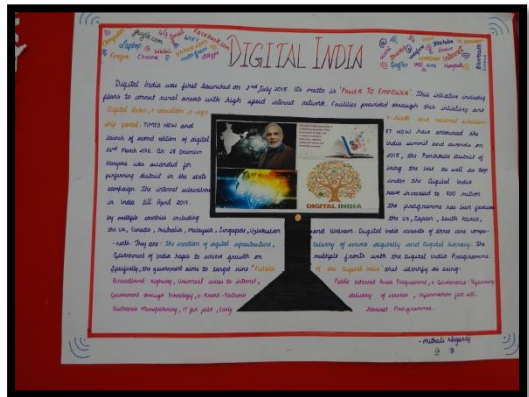 Computer google.com Gmail Facebook.com
Laptop WiFi
Yahoo.com
Chrome
DIGITAL INDIA
YouTube
Internet
Bluetooth
Digital India was first launched on 2nd July 2015. Its motto is 'POWER TO EMPOWER'. This initiative includes
plans to connect rural areas with high speed internet network. Facilities provided through this initiative are
Digital locker, e-education, e-sign e-health and national scholar-
ship portal. TIMES NOW and ET NOW have announced the
launch of second edition of digital India summit and awards on
22nd March 2016. On 28 December 2015, the Panchkula district of
Haryana was awarded for being the best as well as top
performing district in the state under the Digital India
campaign. The internet subscribers have increased to 500 million
in India till April 2017. The programme has been favoured
by multiple countries including the US, Japan, South Korea,
the UK, Canada, Australia, Malaysia, Singapore, Uzbekistan and Vietnam. Digital India consists of three core compo-
-nents. They are: The creation of digital infrastructure, Delivery of service digitally and Digital literacy. The
Government of India hopes to achieve growth on multiple fronts with the Digital India Programme.
Specifically, the government aims to target nine 'Pillars of the Digital India' that identify as being:
Broadband highway, Universal access to internet, Public Internet Access Programme, e-Governance: Reforming
Government through Technology, e-Kranti - Electronic delivery of services, Information for all,
Electronics Manufacturing, IT for jobs, Early Harvest Programme.
DIGITAL INDIA
- Mithali